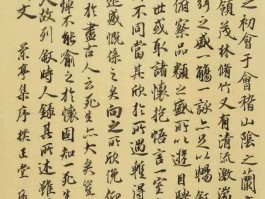 之初會于會稽山陰之蘭
領茂林脩竹又有清流激湍
之盛一觴一詠亦足以暢敘
俯察品類之盛所以遊目騁
世或取諸懷抱悟言一室
不同當其欣於所遇暫得
遷感慨係之矣向之所欣俛仰
於盡古人云死生亦大矣豈
悼不能喻之於懷固知死生
人故列敘時人錄其所述雖
文 蘭亭集序 正堂